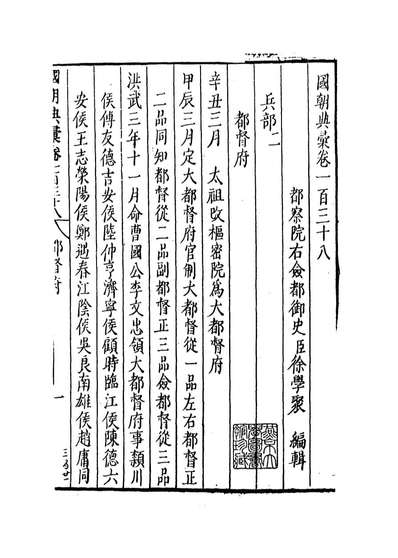 國朝典彙卷一百三十八
都察院右僉都御史臣徐學聚 編輯
兵部二
都督府
辛丑三月 太祖改樞密院爲大都督府
甲辰三月定大都督府官制大都督從一品左右都督正
二品同知都督從二品副都督正三品僉都督從三品
洪武三年十一月命曹國公李文忠領大都督府事潁川
侯傅友德吉安侯陸仲亨濟寧侯顧時臨江侯陳德六
安侯王志滎陽侯鄭遇春江陰侯吳良南雄侯趙庸同
國朝典彙卷一百三十八 都督府
一